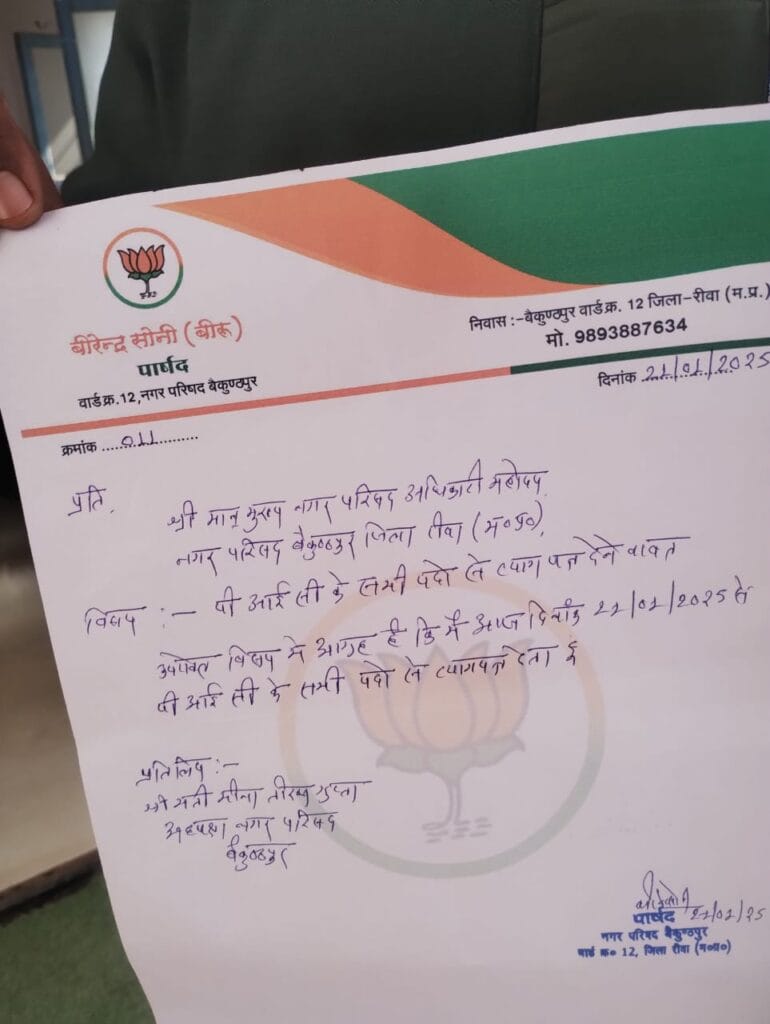 बीरेन्द्र सोनी (बीरू)
पार्षद
वार्ड क्र.12,नगर परिषद बैकुण्ठपुर
निवास :-बैकुण्ठपुर वार्ड क्र. 12 जिला-रीवा (म.प्र.)
मो. 9893887634
क्रमांक ....011..........
दिनांक 21/01/2025
प्रति,
श्री मान् मुख्य नगर परिषद अधिकारी महोदय
नगर परिषद बैकुण्ठपुर जिला रीवा (म०प्र०),
विषय :- पी आई सी के सभी पदो से त्याग पत्र देने वावत
उपरोक्त विषय मे आग्रह है कि मै आज दिनांक 21/01/2025 से
पी आई सी के सभी पदो से त्यागपत्र देता हूं
प्रतिलिपि :-
श्री मती सीमा गुप्ता
अध्यक्ष नगर परिषद
बैकुण्ठपुर
पार्षद 21/01/25
नगर परिषद बैकुण्ठपुर
वार्ड क्र० 12, जिला रीवा (म०प्र०)